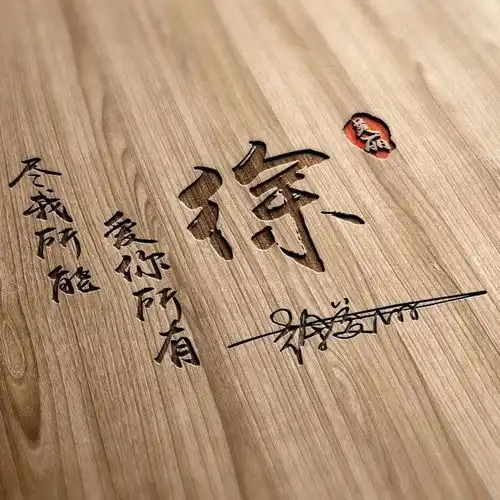 尽我所能
爱你所有
徐
爱丽